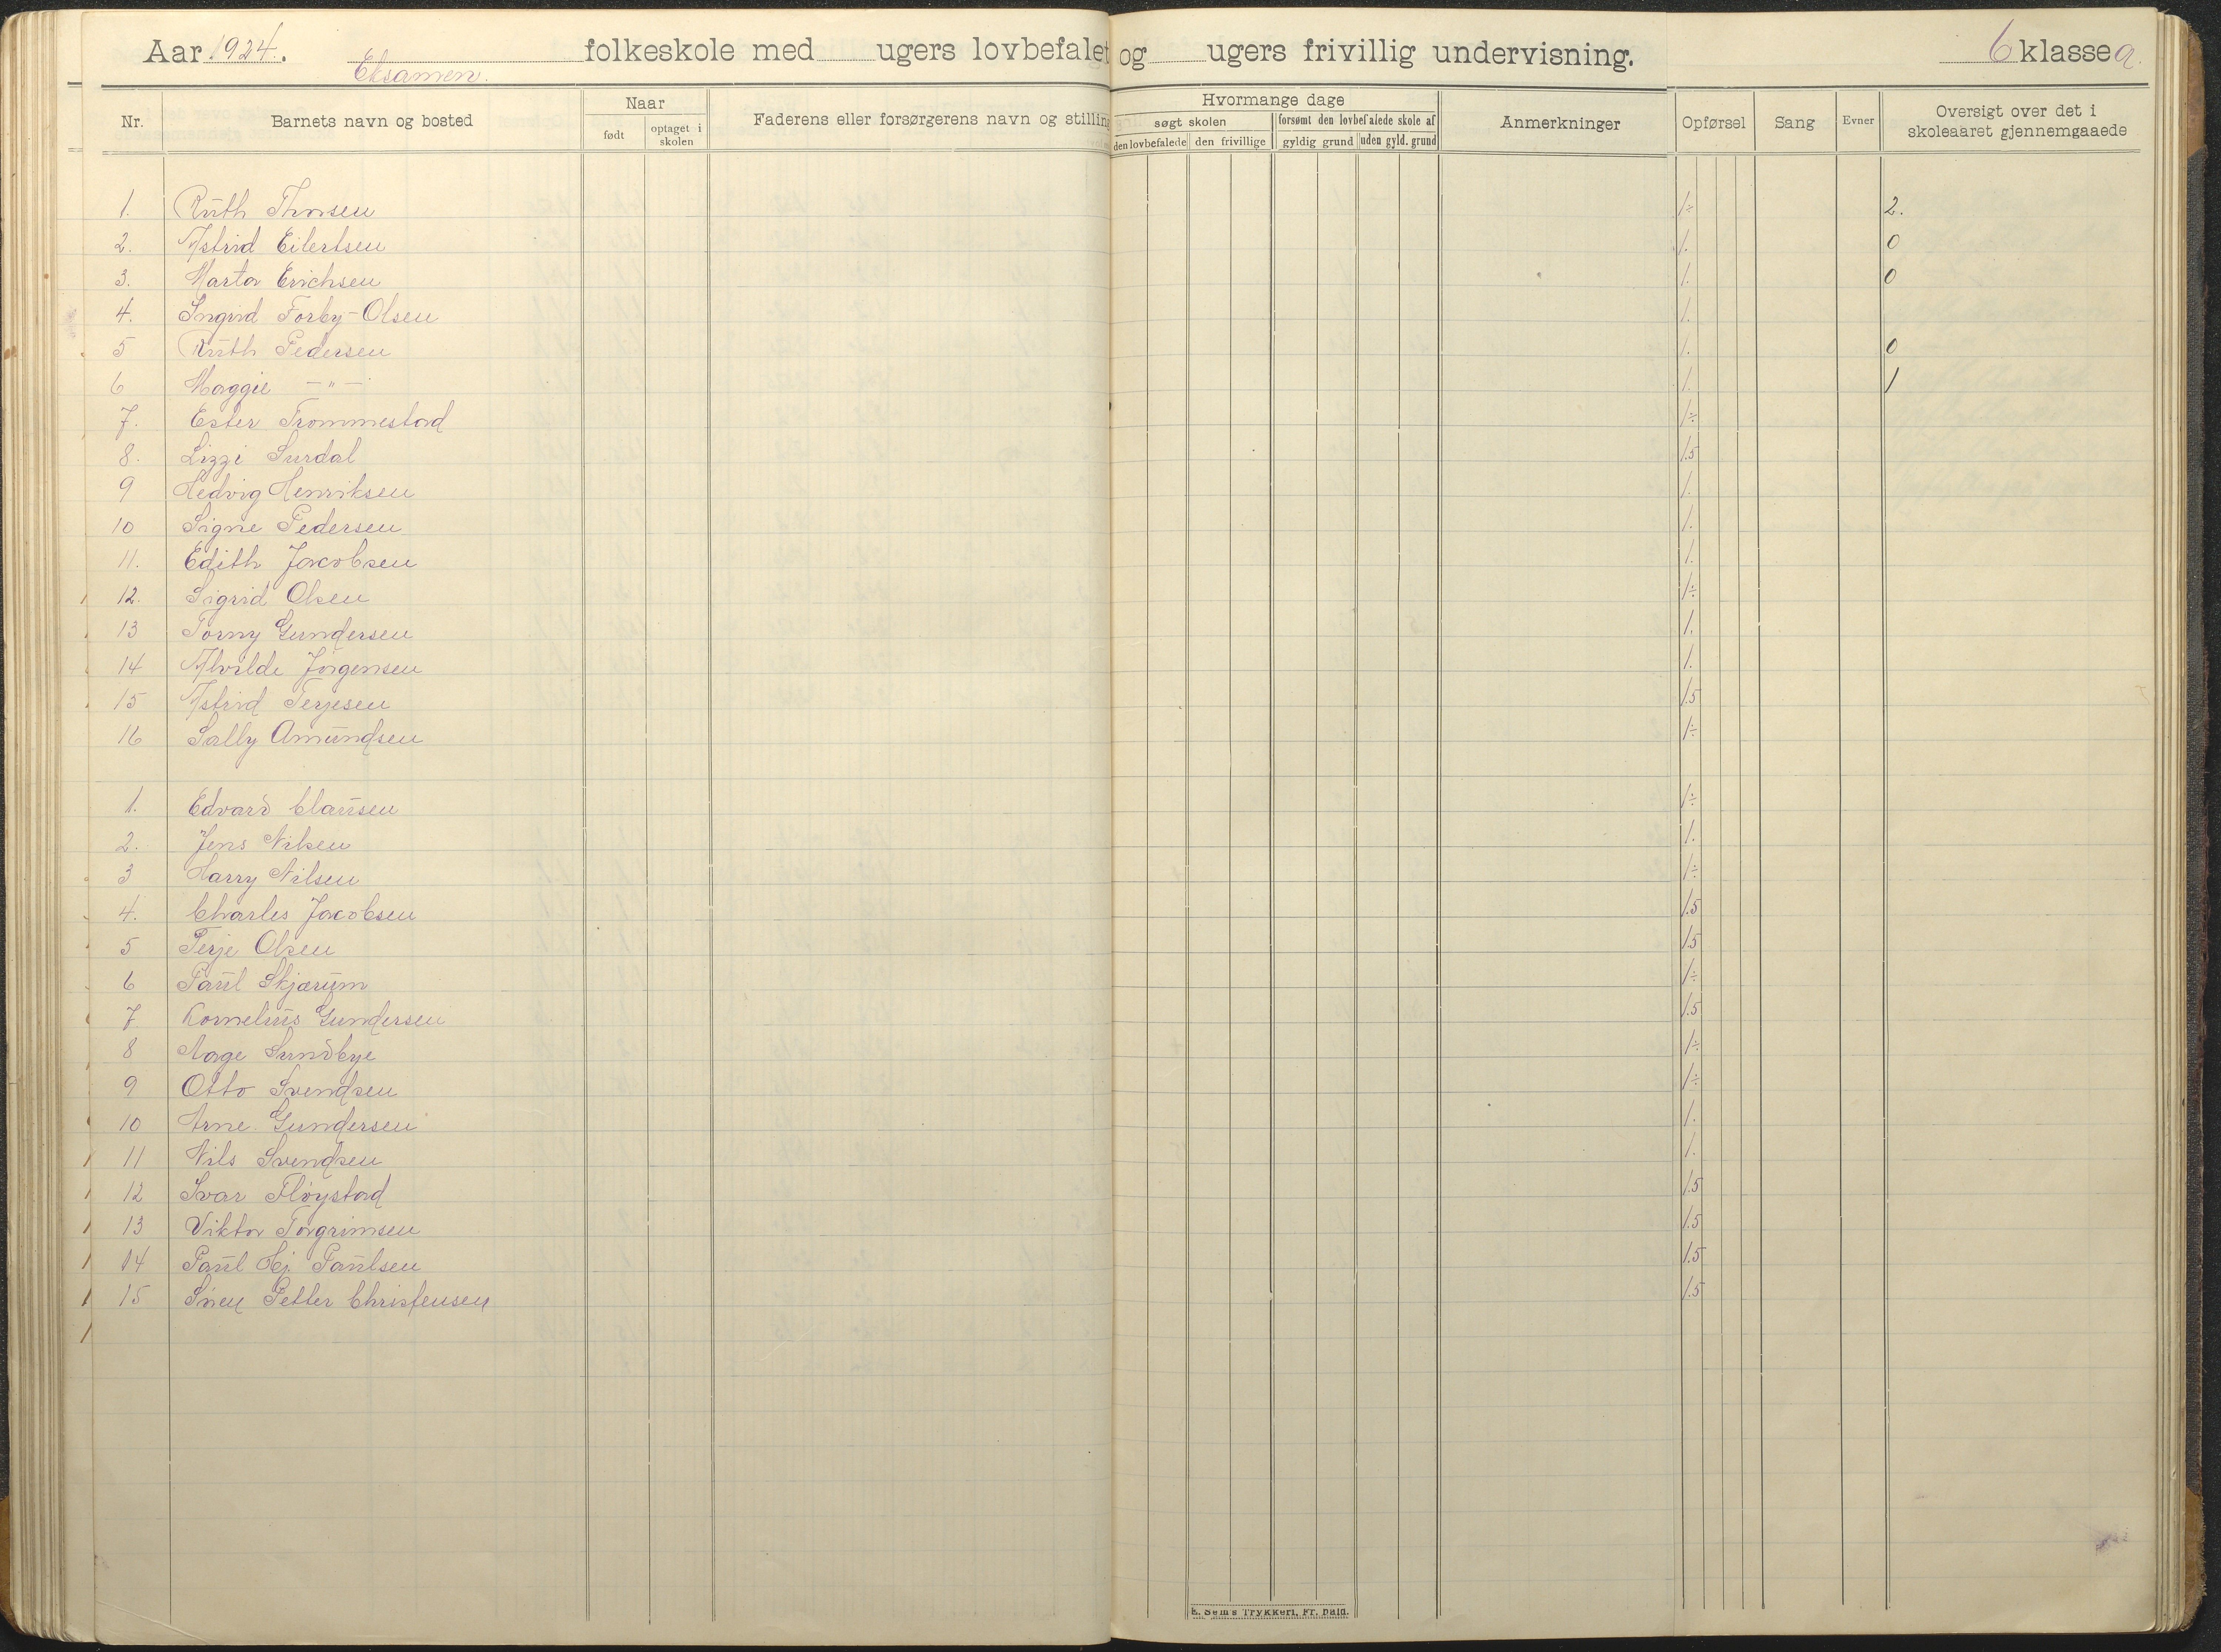 Aar 1924. Eksamen. folkeskole med ugers lovbefalet og ugers frivillig undervisning. 6 klasse a.
Nr. Barnets navn og bosted Naar Faderens eller forsørgerens navn og stilling Hvormange dage Anmerkninger Opførsel Sang Evner Oversigt over det i skoleaaret gjennemgaaede
født optaget i skolen søgt skolen forsømt den lovbefalede skole af
den lovbefalede den frivillige gyldig grund uden gyld. grund
1. Ruth Thorsen 1÷ 2.
2. Astrid Eilertsen 1. 0
3. Marta Erichsen 1. 0
4. Ingrid Forby-Olsen 1.
5 Ruth Pedersen 1. 0
6 Maggie —"— 1. 1
7. Ester Trommestad 1÷
8. Lizzi Surdal 1.5
9 Hedvig Henriksen 1.
10 Signe Pedersen 1.
11. Edith Jacobsen 1.
12. Sigrid Olsen 1÷
13 Torny Gundersen 1.
14 Alvilde Jørgensen 1.
15 Astrid Terjesen 1.5
16 Sally Amundsen 1÷
1. Edvard Clausen 1÷
2. Jens Nilsen 1.
3 Harry Nilsen 1÷
4. Charles Jacobsen 1.5
5 Terje Olsen 1.5
6 Paul Skjærum 1÷
7 Kornelius Gundersen 1.5
8 Aage Sundbye 1÷
9 Otto Svendsen 1÷
10 Arne Gundersen 1.
11 Nils Svendsen 1.
12 Ivar Fløystad 1.5
13 Viktor Torgrimsen 1.5
14 Paul Hj. Paulsen 1.5
15 Petter Christensen 1.5
E. Sem's Trykkeri, Fr. hald.